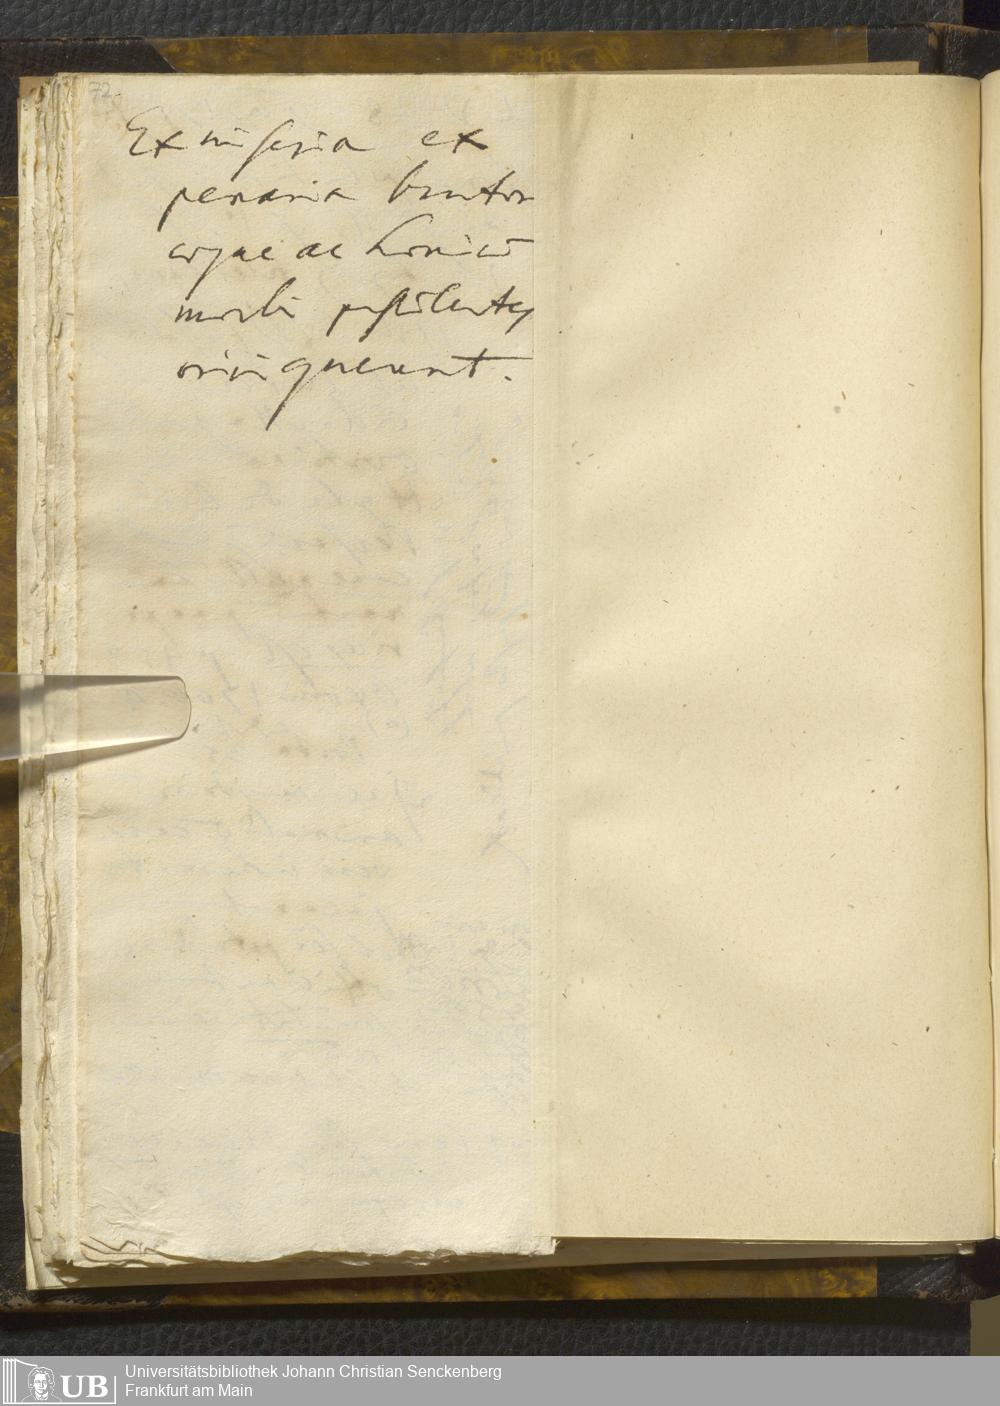 72.
Ex miseria ex
penuria brutor
aeque ac hominū
morbi pestilentes
oriri queunt.
UB
Universitätsbibliothek Johann Christian Senckenberg
Frankfurt am Main